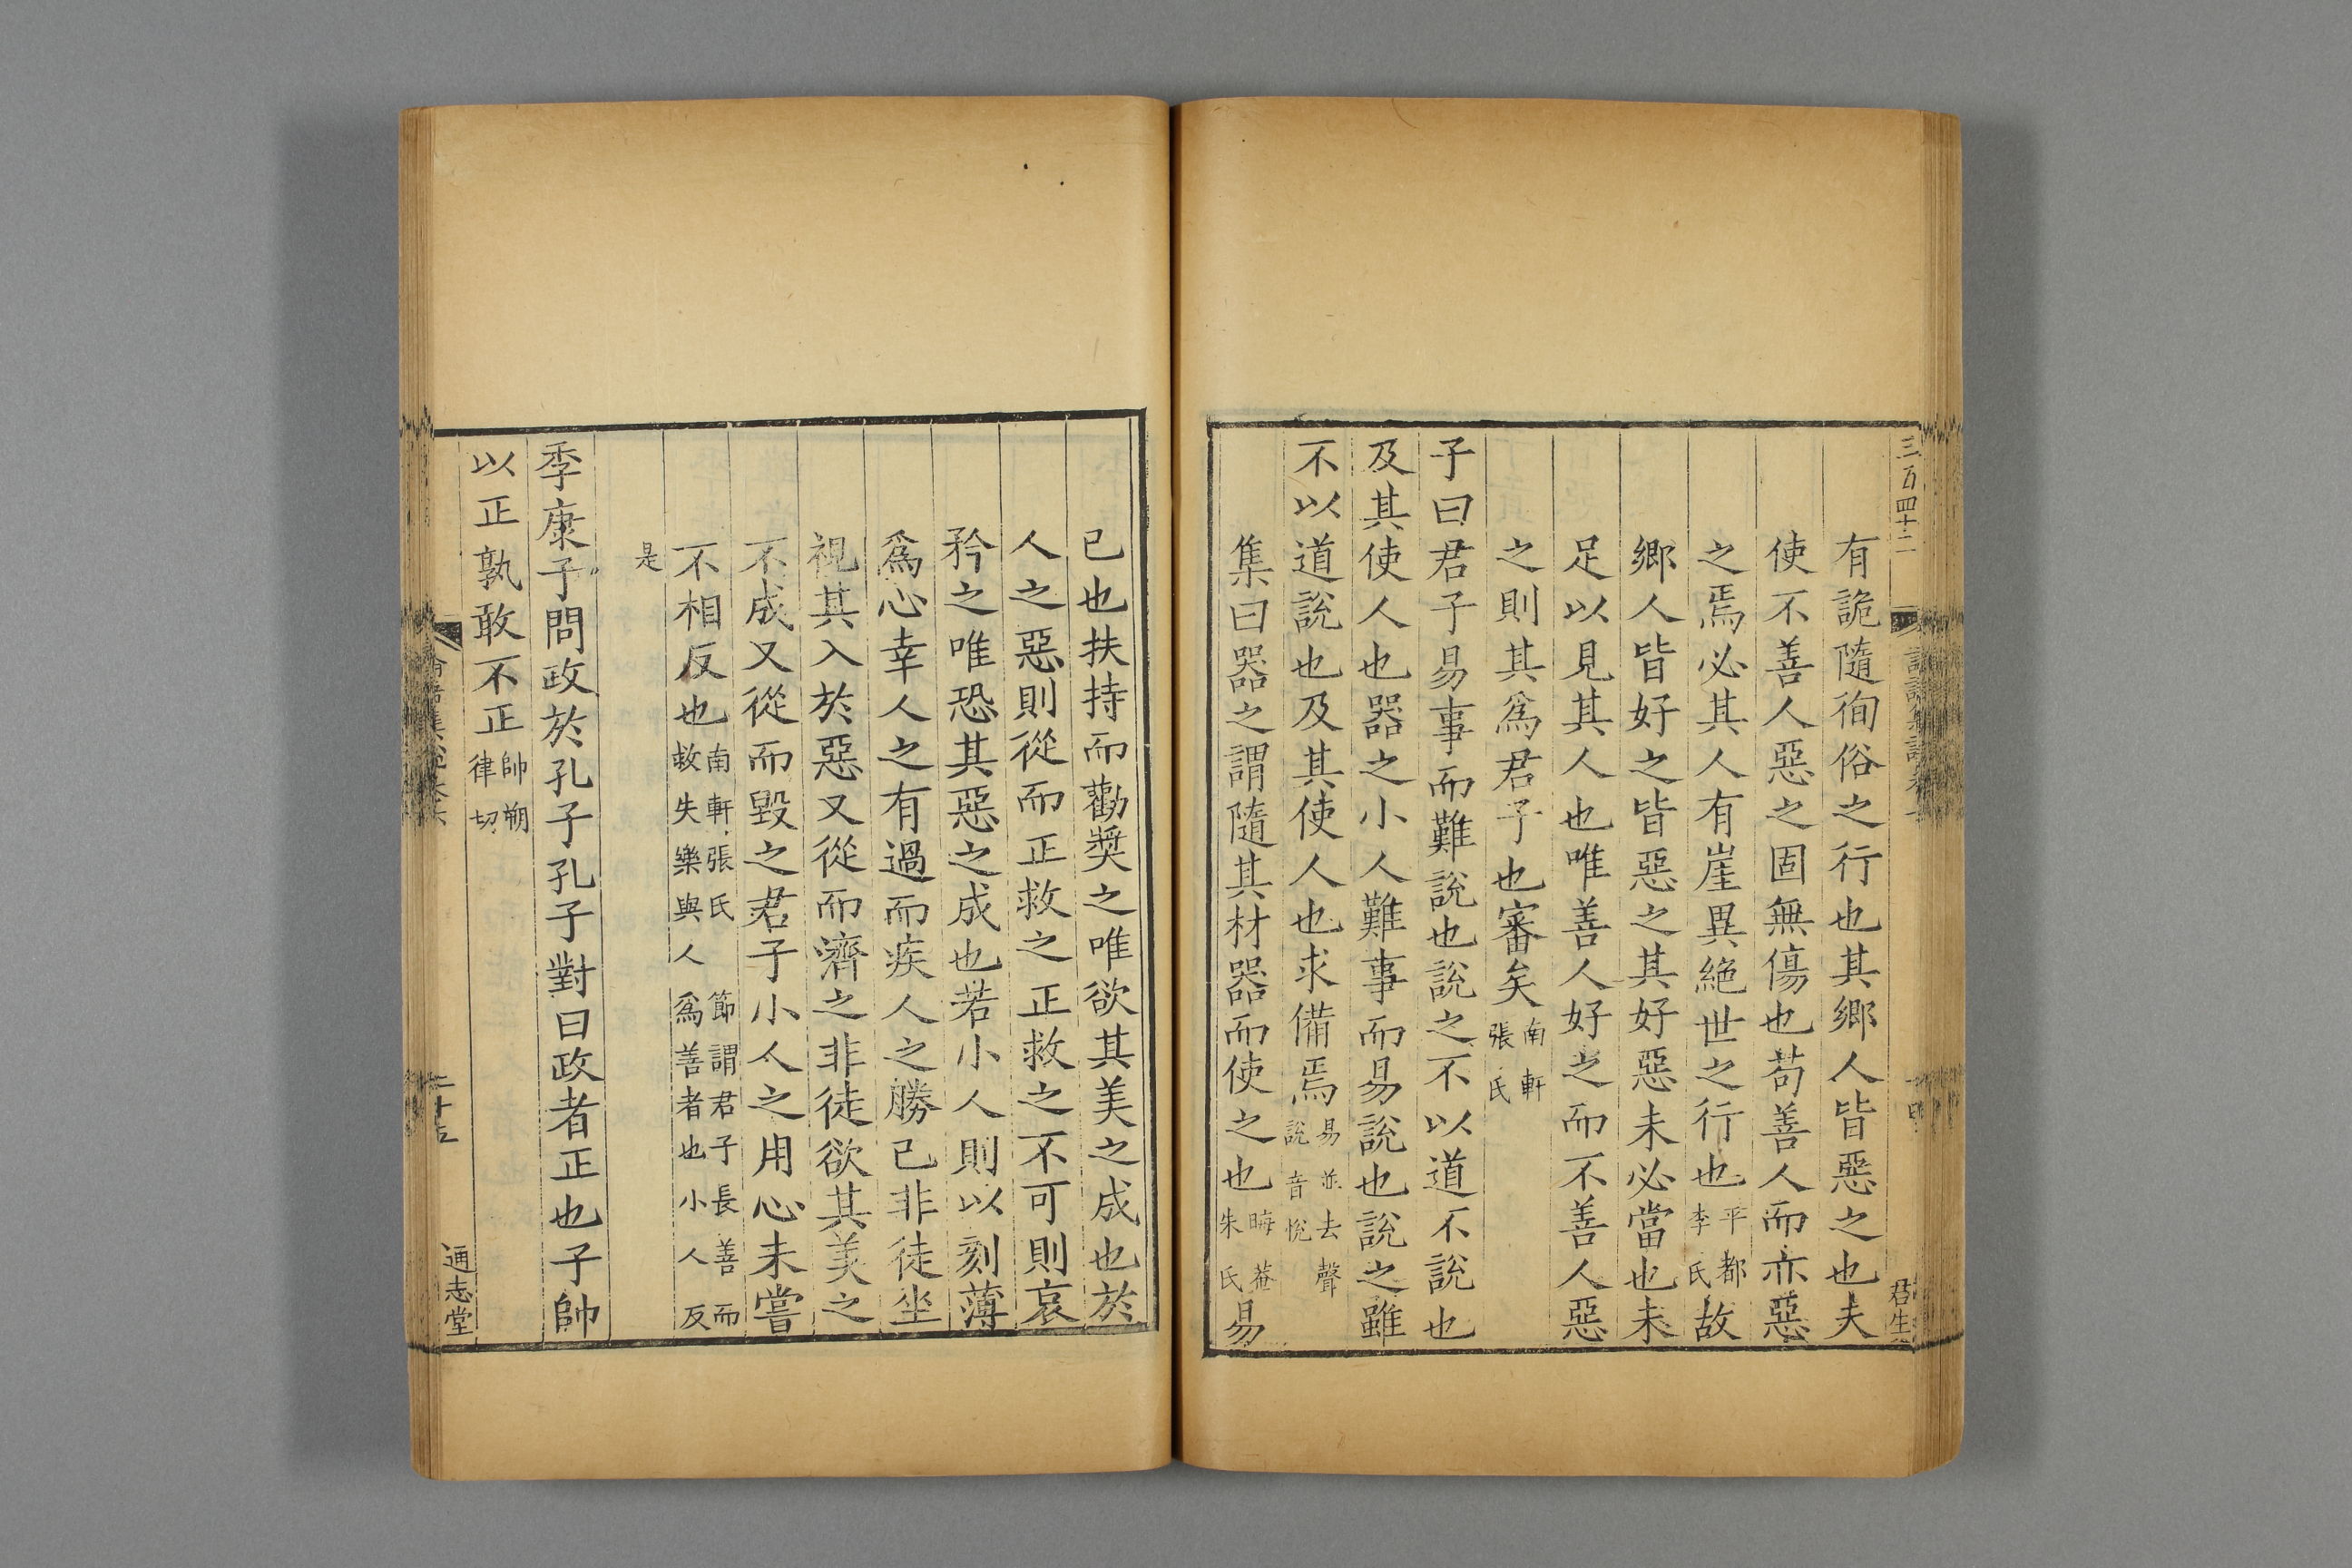 三百四十二
君生
有詭隨徇俗之行也其鄉人皆惡之也夫
使不善人惡之固無傷也苟善人而亦惡
之焉必其人有崖異絶世之行也平都李氏故
鄉人皆好之皆惡之其好惡未必當也未
足以見其人也唯善人好之而不善人惡
之則其爲君子也審矣南軒張氏
子曰君子易事而難說也說之不以道不說也
及其使人也器之小人難事而易說也說之雖
不以道說也及其使人也求備焉易並去聲說音悅
集曰器之謂隨其材器而使之也晦菴朱氏易
已也扶持而勸奬之唯欲其美之成也於
人之惡則從而正救之正救之不可則哀
矜之唯恐其惡之成也若小人則以刻薄
爲心幸人之有過而疾人之勝己非徒坐
視其入於惡又從而濟之非徒欲其美之
不成又從而毀之君子小人之用心未嘗
不相反也南軒張氏故失樂與人節謂君子長善而爲善者也小人反
是
季康子問政於孔子孔子對曰政者正也子帥
以正孰敢不正帥朔律切
二十五
通志堂